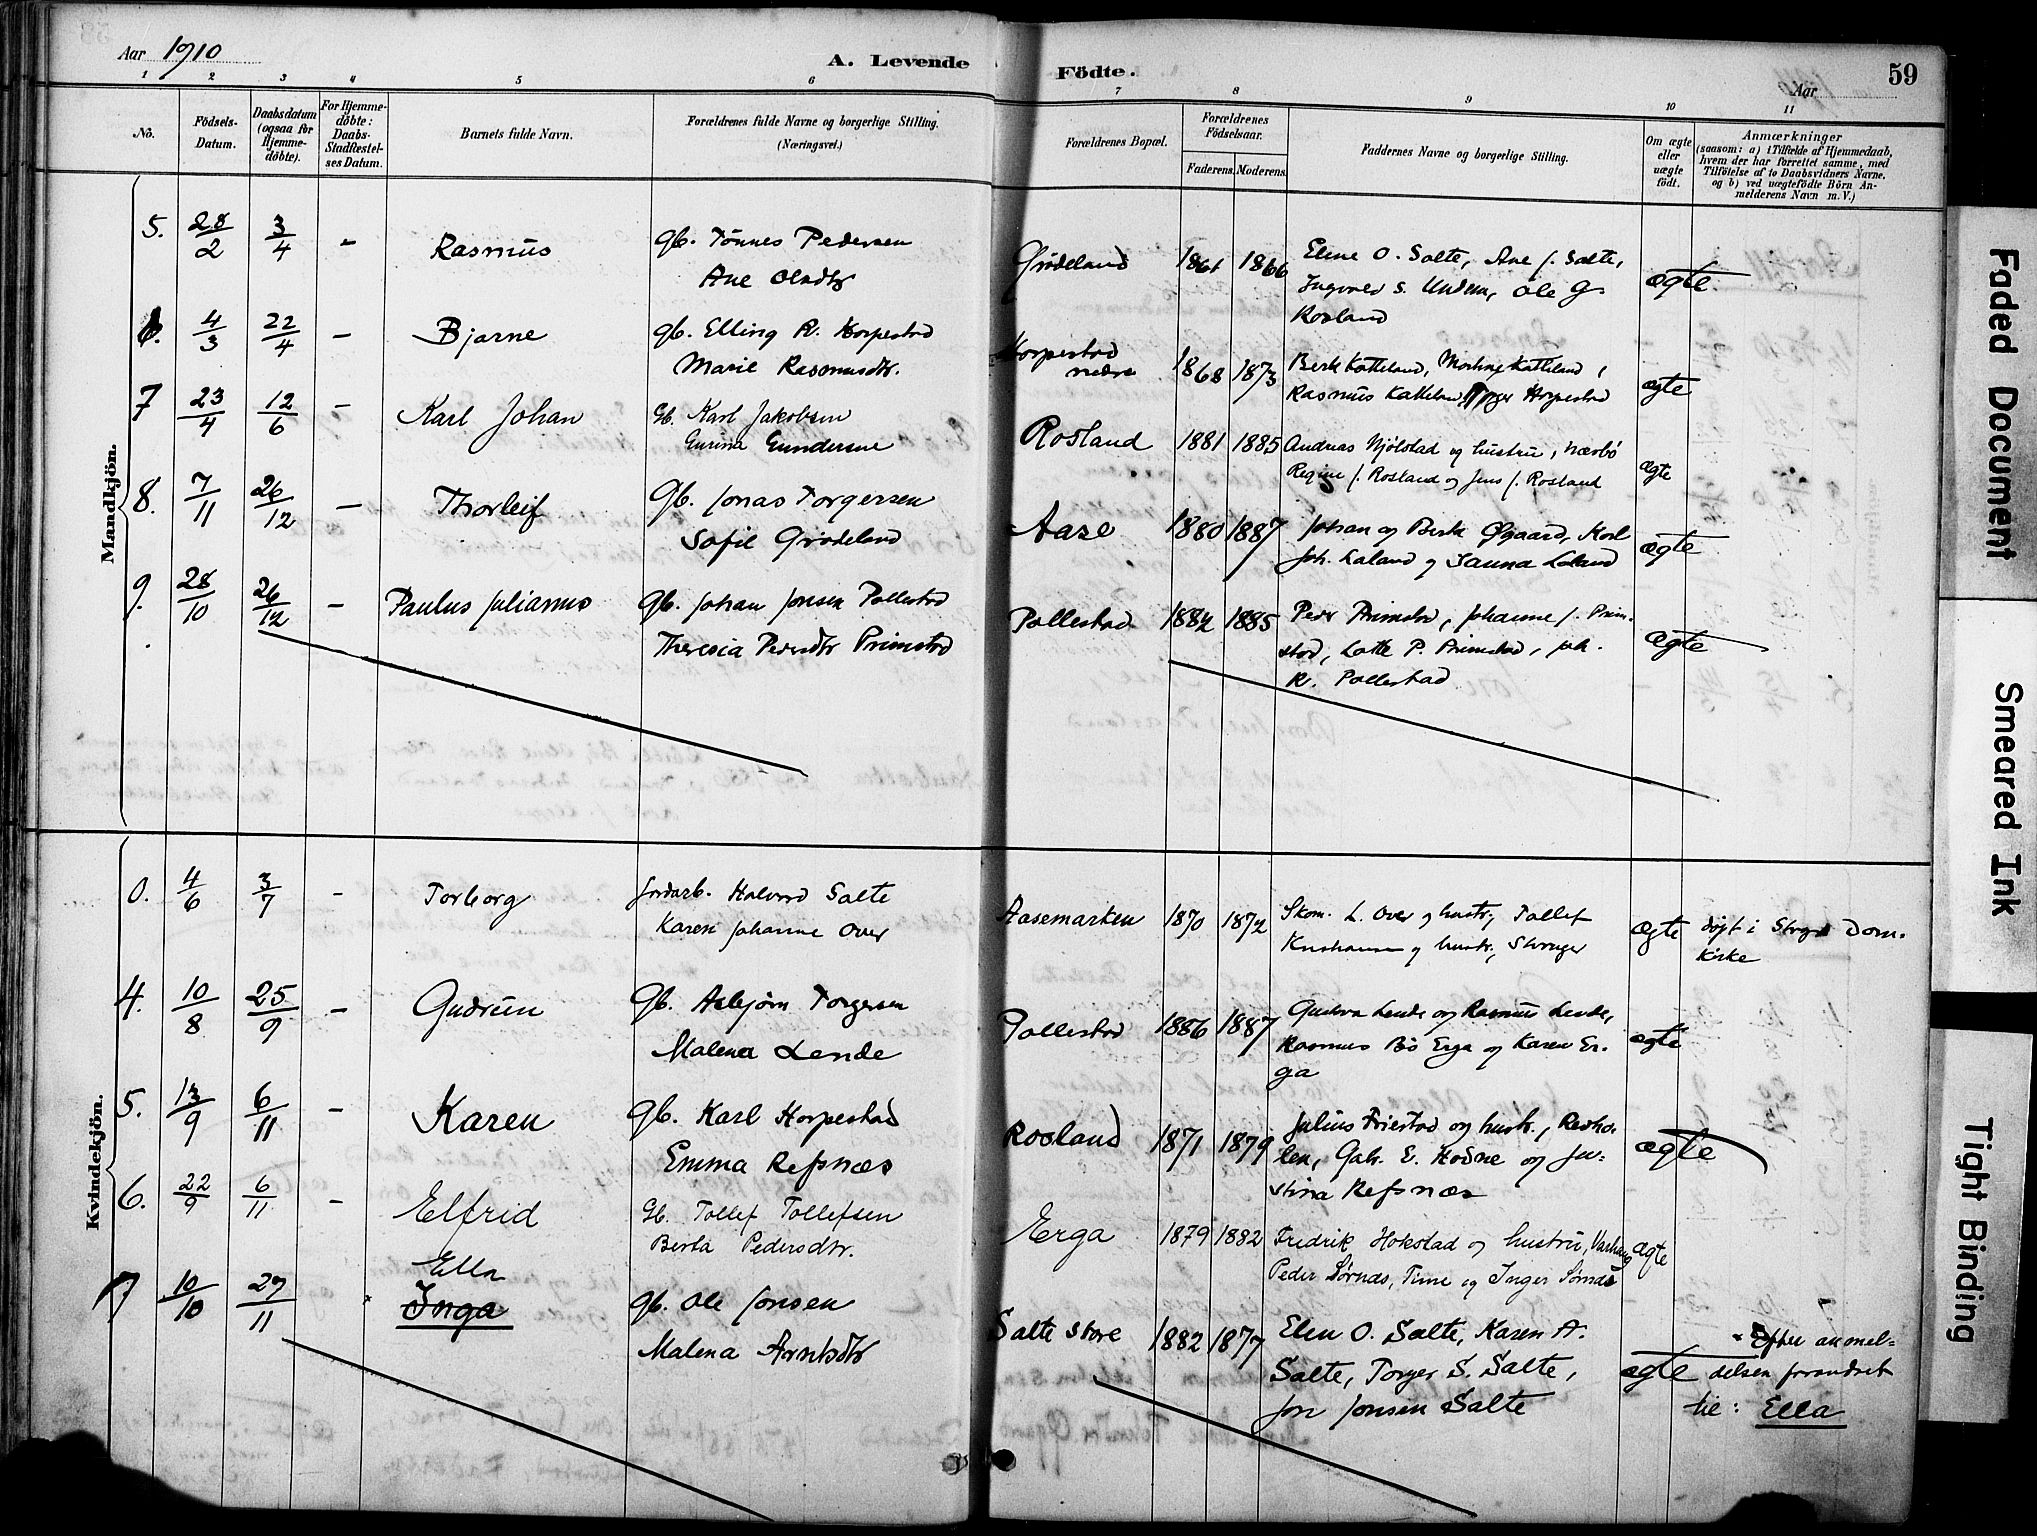 Aar 1910
A. Levende Födte.
59
Aar
1 2 3 4 5 6 7 8 9 10 11
No.
Födsels-Datum.
Daabsdatum (ogsaa for Hjemme-döbte).
For Hjemme-döbte: Daabs-Stadfæstel-ses Datum.
Barnets fulde Navn.
Forældrenes fulde Navne og borgerlige Stilling.
(Næringsvei.)
Forældrenes Bopæl.
Forældrenes Födselsaar.
Faderens. Moderens.
Faddernes Navne og borgerlige Stilling.
Om ægte eller uægte födt.
Anmærkninger
(saasom: a) i Tilfælde af Hjemmedaab,
hvem der har forrettet samme, med
Tilföielse af to Daabsvidners Navne.
og b) ved uægtefödte Börn An-
melderens Navn m. V.)
Mandkjön.
5. 28/2 3/4 - Rasmus Gb. Tönnes Pedersen Grödeland 1861 1866 Eline O. Salte, Ane J. Salte, ægte.
Ane Olsdtr Ingvald S. Undem, Ole G.
Rosland
6. 4/3 22/4 - Bjarne Gb. Elling R. Horpestad Horpestad 1868 1873 Berte Katteland, Katteland, ægte
Marie Rasmusdtr. nedre Rasmus Katteland, Horpestad
7 23/4 12/6 - Karl Johan Gb. Karl Jakobsen Rosland 1881 1885 Andreas Njölstad og hustru, Nærbö ægte
Gurina Gundersene Regine J. Rosland og Jens J. Rosland
8. 7/11 26/12 - Thorleif Gb. Jonas Torgersen Aase 1880 1887 Johan og Berte Øgaard, Karl ægte
Sofie Grödeland Joh. Laland og Laland
9. 28/10 26/12 - Paulus Julianus Gb. Johan Jonsen Pollestad Pollestad 1882 1885 Peder Primstad, Johanne J. Prim- ægte
Theresia Pedersdtr Primstad stad, Lotte P. Primstad, Joh.
R. Pollestad
Kvindekjön.
0. 4/6 3/7 - Torborg Jordarb. Halvard Salte Aasemarken 1870 1872 Skom. L. Over og hustr, Tollef ægte døpt i Stvgr Dom-
Karen Johanne Over og hustr., kirke
4. 10/8 25/9 - Gudrun Gb. Asbjörn Torgersen Pollestad 1886 1887 Gustava Lende og Rasmus Lende, ægte
Malena Lende Rasmus Bö Erga og Karen Er-
ga
5. 13/9 6/11 - Karen Gb. Karl Horpestad Rosland 1871 1879 Julius Friestad og hustr., Redho- ægte
Emma Refsnæs len, Gab. E. Hodne og Ju-
stina Refsnæs
6. 22/9 6/11 - Elfrid Gb. Tollef Tollefsen Erga 1879 1882 Fredrik Hokstad og hustru, Varhaug ægte
Berta Pedersdtr. Peder Sörnæs, Time og Inger Sörnæs
Ella
7 10/10 27/11 Inga Gb. Ole Jonsen Salte store 1882 1877 Elen O. Salte, Karen A. ægte Efter anmel-
Malena Arntsdtr Salte, Torger S. Salte, delsen forandret
Jon Jonsen Salte til: Ella
Faded Document
Smeared Ink
Tight Binding